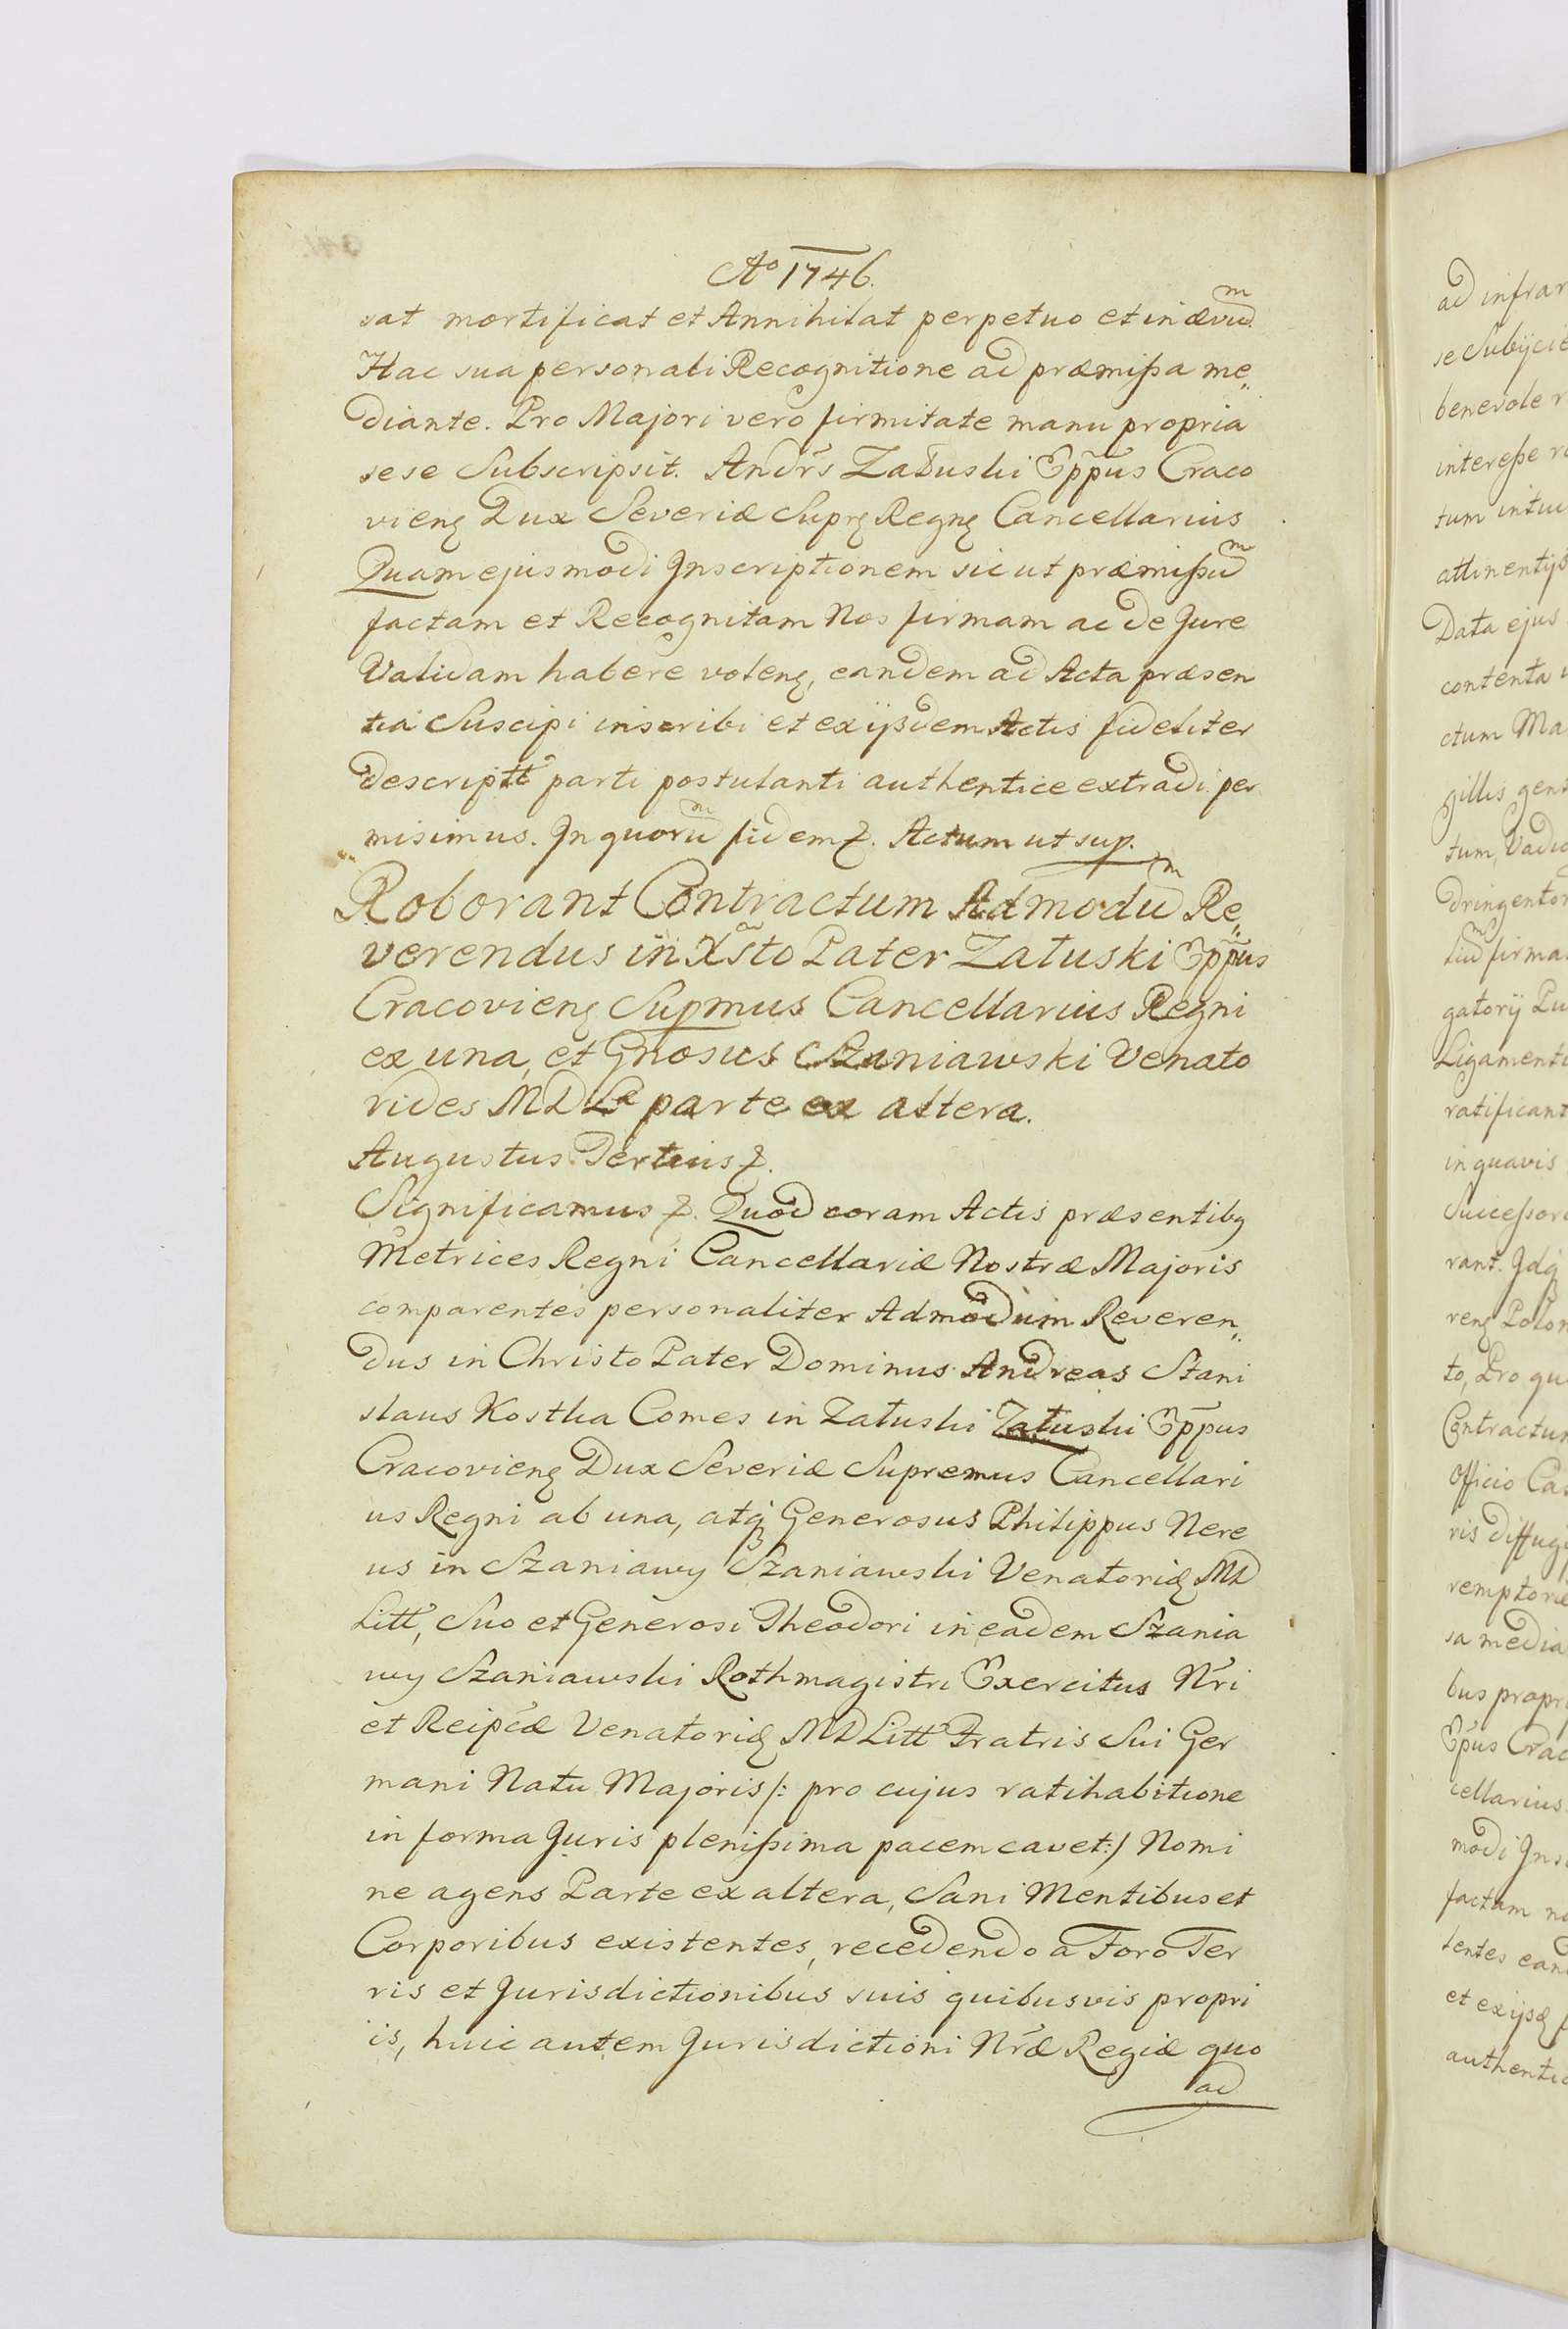 Ao 1746.
sat mortificat et Annihilat perpetuo et in ævum
Hac sua personali Recognitione ad præmissa me„
diante. Pro Majori vero firmitate manu propria
sese Subscripsit. Andrs Załuski Eppus Craco
vienẽ Dux Severiæ Suprẽ Regnẽ Cancellarius
Quam ejusmodi Jnscriptionem sic ut præmissum
factam et Recognitam Nos firmam ac de Jure
Validam habere volenẽ, eandem ad Acta præsen
tia Suscipi inscribi et ex ijsdem Actis fideliter
descriptt parti postulanti authentice extradi per
misimus. Jn quorum fidem &. Actum ut sup.
Roborant Contractum Admodum Re„
verendus in Xsto Pater Załuski Eppus
Cracovienẽ Supmus Cancellarius Regni
ex una, et Gnosus Szaniawski Venato
rides MDL parte ex altera.
Augustus Tertius &.
Significamus &. Quod coram Actis præsentibq
Metrices Regni Cancellariæ Nostræ Majoris
comparentes personaliter Admodum Reveren„
dus in Christo Pater Dominus Andreas Stani
slaus Kostka Comes in Załuski Załuski Eppus
Cracovienẽ Dux Severiæ Supremus Cancellari
us Regni ab una, atq Generosus Philippus Nere
us in Szaniawy Szaniawski Venatoridẽ MD
Litt, Suo et Generosi Theodori in eadem Szania
wy Szaniawski Rothmagistri Exercitus Nri
et Reipcæ Venatoridẽ MD Litt Fratris Sui Ger
mani Natu Majoris /: pro cujus ratihabitione
in forma Juris plenissima pacem cavet :/ Nomi
ne agens Parte ex altera, Sani Mentibus et
Corporibus existentes, recedendo a Foro Ter
ris et Jurisdictionibus suis quibusvis propri
is, huic autem Jurisdictioni Nræ Regiæ quo
ad
ad infrar
se Subijcie
benevole r
interesse
tum intui
attinentijs
Data ejus
contenta
ctum Ma
gillis gen
tum, Vadio
dringentor
firma
gatorij Pu
Ligamenti
ratificant
in quavis
Successor
rant. Jdq
renẽ Polon
to, Pro qu
Contractu
Officio Cas
ris diffugi
remptorie
sa media
bus propri
Eppus Crac
cellarius
modi Jns
factam no
tentes ean
et ex ijsdẽ
authentic